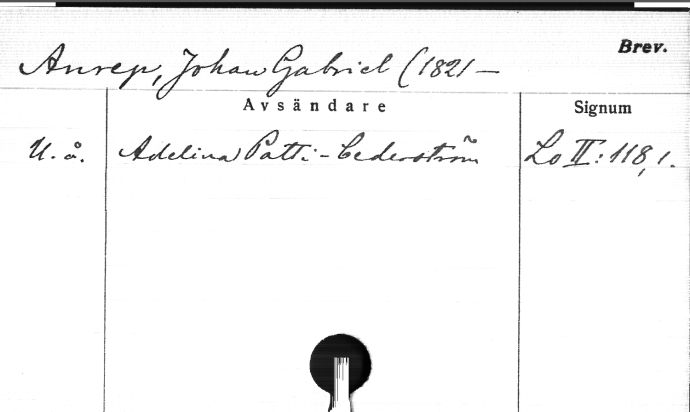 Brev.
Anrep, Johan Gabriel (1821 —
Avsändare Signum
U. å. Adelina Patti-Cederström Lo II: 118,1.